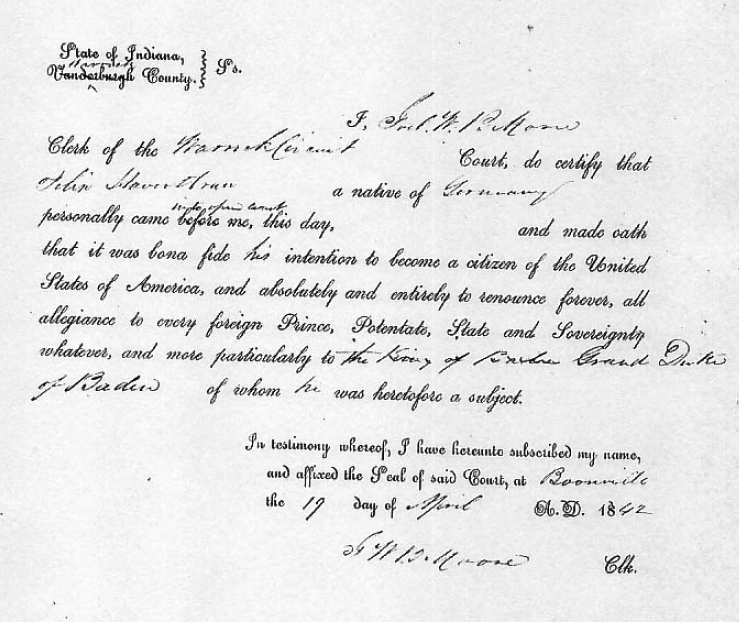 State of Indiana,
Warrick
Vanderburgh County. } Ss.
I, Joel. W. B. Moore
Clerk of the Warrick Circuit Court, do certify that
a native of Germany
into open court
personally came before me, this day, and made oath
that it was bona fide his intention to become a citizen of the United
States of America, and absolutely and entirely to renounce forever, all
allegiance to every foreign Prince, Potentate, State and Sovereignty
whatever, and more particularly to the King of Baden Grand Duke
of Baden of whom he was heretofore a subject.
In testimony whereof, I have hereunto subscribed my name,
and affixed the Seal of said Court, at Boonville
the 19 day of April A. D. 1842
J W B Moore Clk.